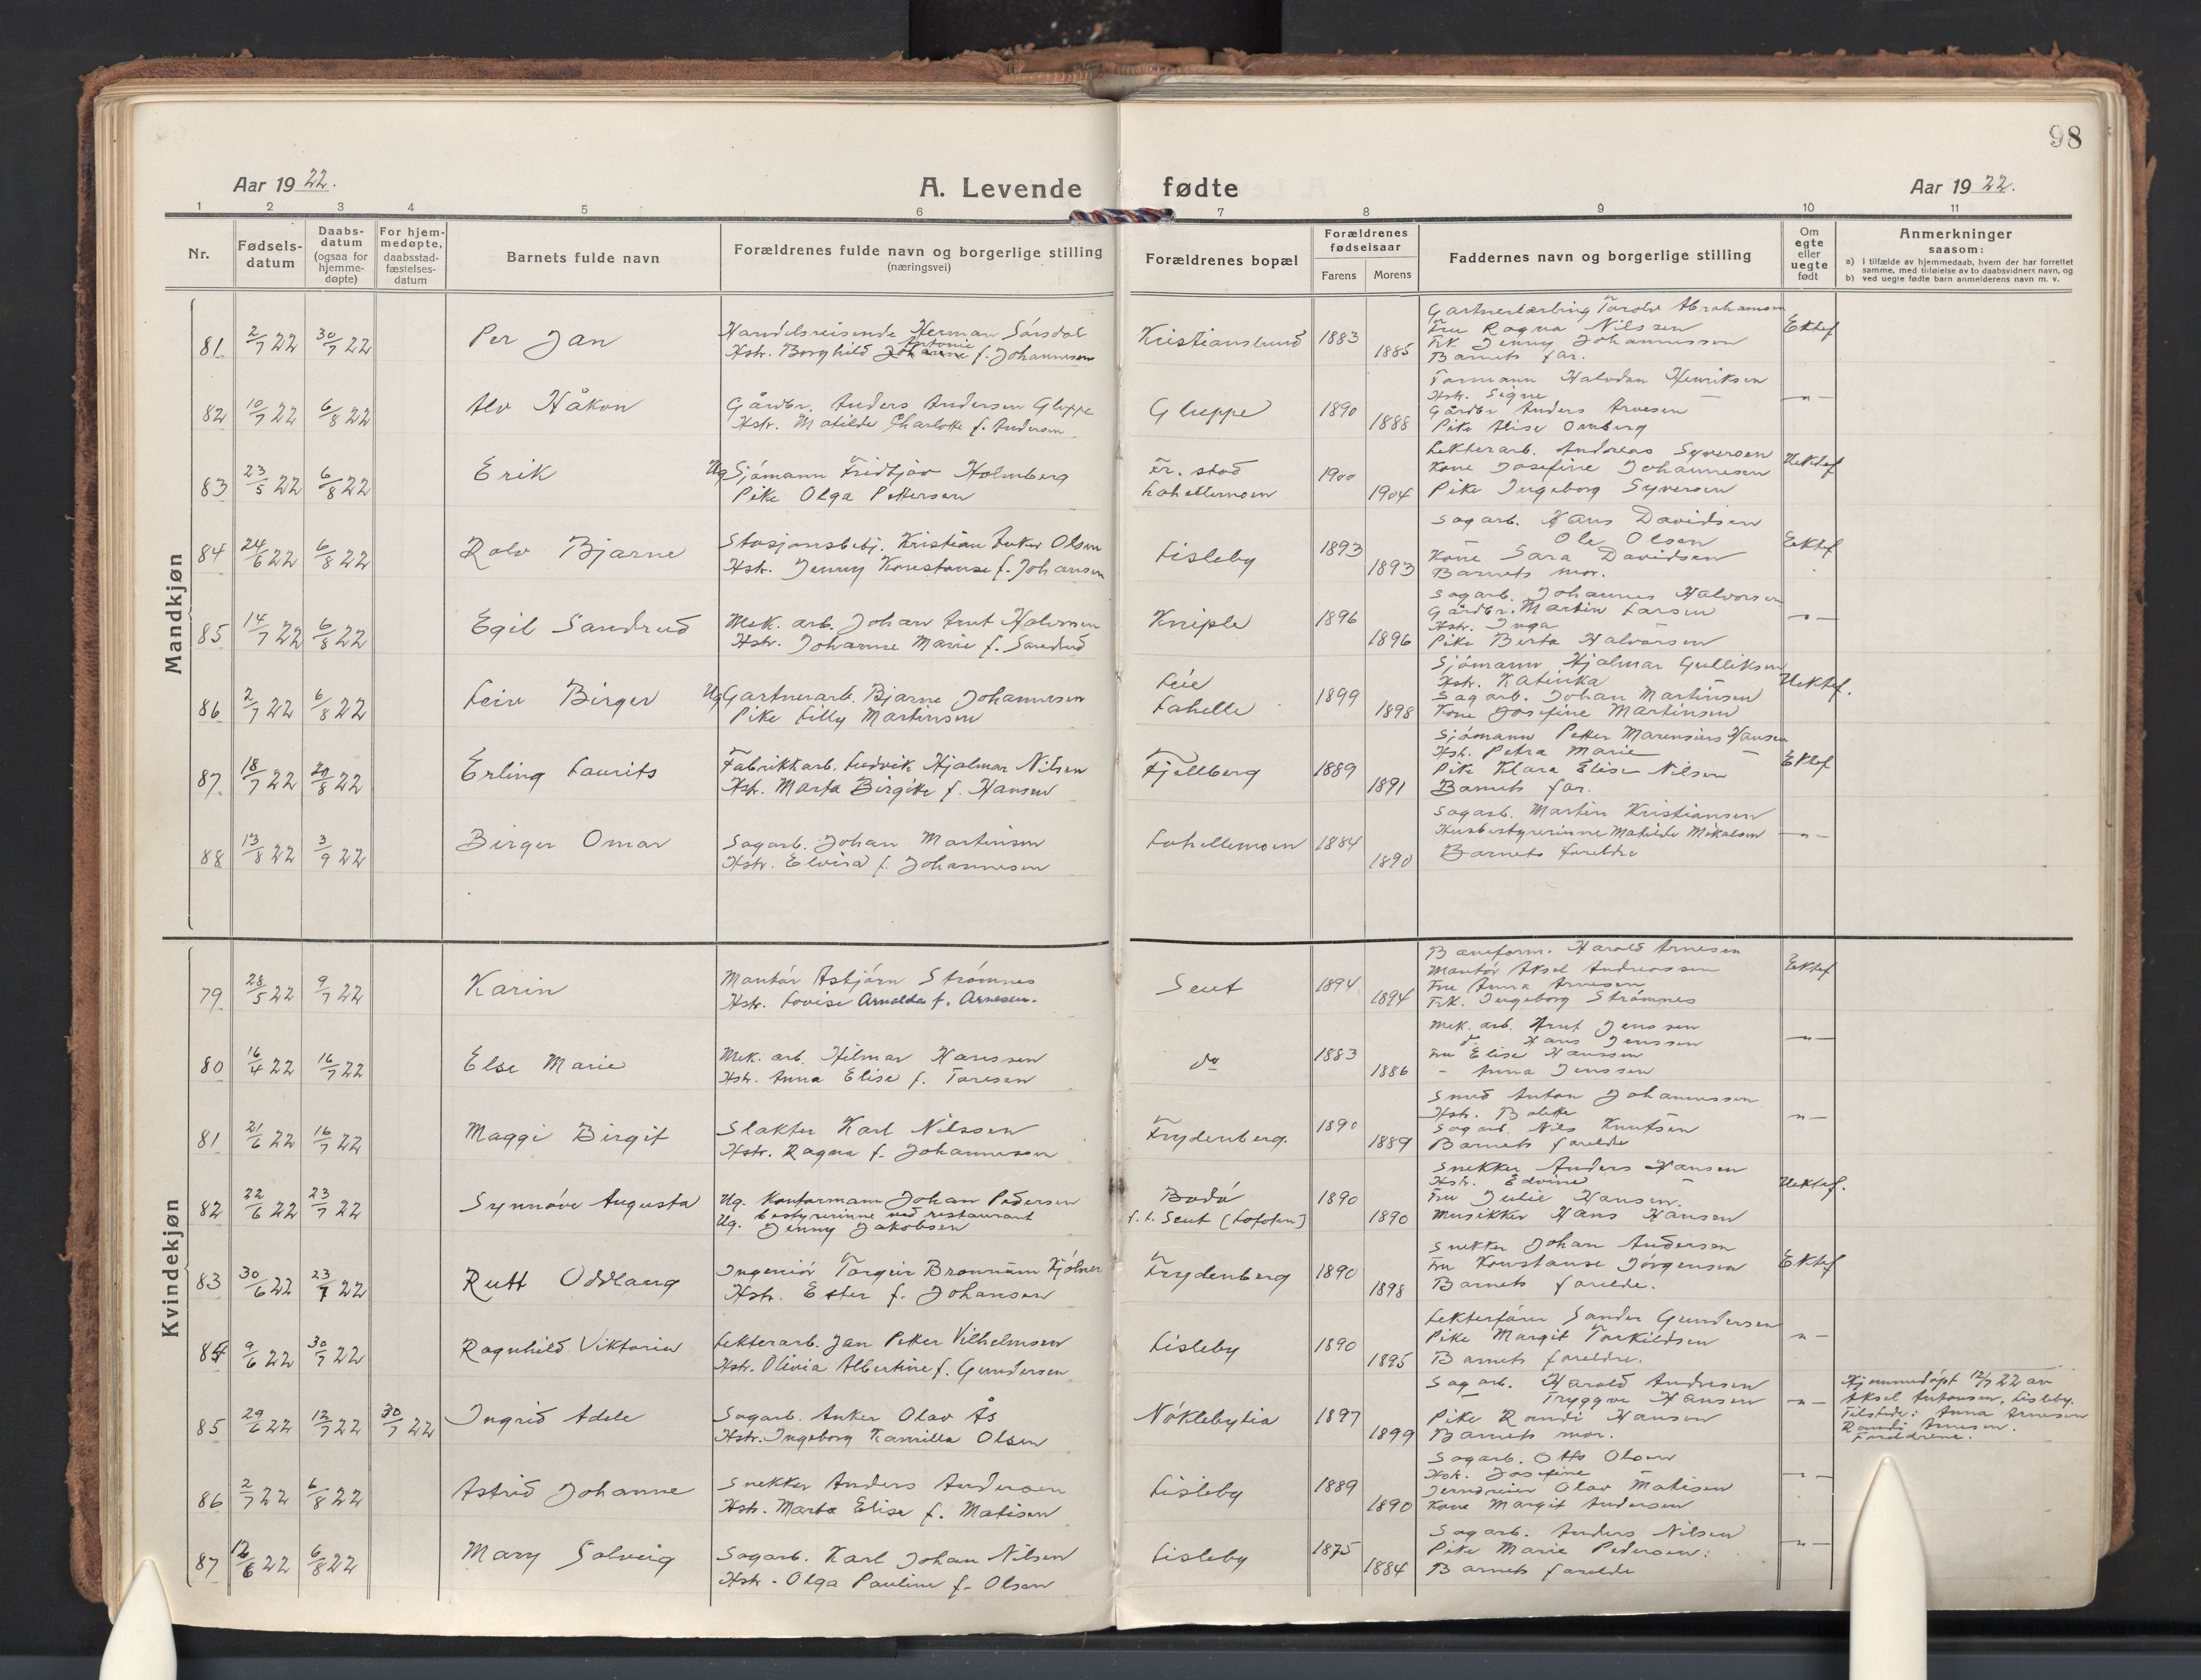 98
Aar 1922.
A. Levende fødte
Aar 1922.
1 2 3 4 5 6 7 8 9 10 11
Nr.
Fødsels-
datum
Daabs-
datum
(ogsaa for
hjemme-
døpte)
For hjem-
medøpte,
daabsstad-
fæstelses-
datum
Barnets fulde navn
Forældrenes fulde navn og borgerlige stilling
(næringsvei)
Forældrenes bopæl
Forældrenes
fødselsaar
Farens Morens
Faddernes navn og borgerlige stilling
Om
egte
eller
uegte
født
Anmerkninger
saasom:
a) I tilfælde av hjemmedaab, hvem der har forrettet
samme, med tilføielse av to daabsvidners navn, og
b) ved uegte fødte barn anmelderens navn m. v.
Mandkjøn
81 2/7 22 30/7 22 Per Jan
Handelsreisende Herman Sørsdal
Hstr. Borghild Antonie f. Johannesen
Kristianslund 1883 1885
Gartnerlærling Torolv Abrahamsen
Fru Ragna Nilssen
Frk. Jenny Johannessen
Barnets far.
Ektef
82 10/7 22 6/8 22 Alv Håkon
Gårdbr. Anders Andersen Gluppe
Hstr. Matilde Charlotte f. Andersen
Gluppe 1890 1888
Formann Halvdan Henriksen
Hstr. Signe —
Gårdbr Anders Arvesen
Pike Elise Omberg
—„—
83 23/5 22 6/8 22 Erik
Ug Sjømann Fridtjov Holmberg
Pike Olga Pettersen
Fr. stad
Lahellemoen
1900 1904
Lekterarb. Andreas Syversen
Kone Josefine Johannesen
Pike Ingeborg Syversen
Uektef
84 24/6 22 6/8 22 Rolv Bjarne
Stasjonsbetj. Kristian Anker Olsen
Hstr. Jenny Konstanse f. Johansen
Lisleby 1893 1893
Sagarb. Hans Davidsen
Ole Olsen
Kone Sara Davidsen
Barnets mor.
Eektef
85 14/7 22 6/8 22 Egil Sandrud
Mek. arb. Johan Arnt Halvorsen
Hstr. Johanne Marie f. Sandrud
Kniple 1896 1896
Sagarb. Johannes Halvorsen
Gårdbr. Martin Larsen
Hstr. Inga
Pike Berta Halvorsen
—„—
86 2/7 22 6/8 22 Leiv Birger
Ug Gartnerarb. Bjarne Johannesen
Pike Lilly Martinsen
Leie
Lahelle
1899 1898
Sjømann Hjalmar Gulliksen
Hstr. Katinka —
Sagarb. Johan Martinsen
Kone Josefine Martinsen
Uektef.
87 18/7 22 20/8 22 Erling Laurits
Fabrikkarb. Ludvik Hjalmar Nilsen
Hstr. Marta Birgitte f. Hansen
Fjellberg 1889 1891
Sjømann Petter Marensius Hansen
Hstr. Petra Marie —
Pike Klara Elise Nilsen
Barnets far.
Ektef
88 13/8 22 3/9 22 Birger Omar
Sagarb. Johan Martinsen
Hstr. Elvira f. Johannesen
Lahellemoen 1884 1890
Sagarb. Martin Kristiansen
Husbestyrerinne Matilde Mikalsen
Barnets foreldre
—„—
Kvindekjøn
79 28/5 22 9/7 22 Karin
Montør Asbjørn Strømnes
Hstr. Lovise Arnalda f. Arnesen.
Seut 1894 1894
Baneform. Harald Arnesen
Montør Aksel Andreassen
Fru Anna Arnesen
Frk. Ingeborg Strømnes
Eektef
80 16/4 22 16/7 22 Else Marie
Mek. arb. Hilmar Hanssen
Hstr. Anna Elise f. Toresen
do 1883 1886
Mek. arb. Arnt Jenssen
do Hans Jenssen
Fru Elise Hanssen
- Anna Jenssen
—„—
81 21/6 22 16/7 22 Maggi Birgit
Slakter Karl Nilssen
Hstr. Ragna f. Johannessen
Frydenberg. 1890 1889
Smed Anton Johannessen
Hstr. Bolette —
Sagarb. Nils Knutsen
Barnets foreldre
—„—
82 22/6 22 23/7 22 Synnøve Augusta
Ug. Kontormann Johan Pedersen
Ug. bestyrerinne ved restaurant
Jenny Jakobsen
Bodø
f. t. Seut (Lofoten)
1890 1890
Snekker Anders Hansen
Hstr. Edvine —
Fru Julie Hansen.
Musikker Hans Hansen
Uektef.
83 30/6 22 23/7 22 Rutt Oddlaug
Ingeniør Torgeir Bronnum Kjølner
Hstr. Ester f. Johansen
Frydenberg 1890 1898
Snekker Johan Andersen
Fru Konstanse Jørgensen
Barnets foreldre.
Ektef
84 9/6 22 30/7 22 Ragnhild Viktoria
Lekterarb. Jan Petter Vilhelmsen
Hstr. Olivia Albertine f. Gundersen
Lisleby 1890 1895
Lekterfører Sander Gundersen
Pike Margit Torkildsen
Barnets foreldre.
—„—
85 29/6 22 12/7 22 30/7 22 Ingrid Adele
Sagarb. Anker Olav Ås
Hstr. Ingeborg Kamilla Olsen
Nøklebylia 1897 1899
Sagarb. Harald Andresen
Tryggve Hansen
Pike Randi Hansen
Barnets mor.
—„—
Hjemmedøpt 12/7 22 av
Aksel Antonsen, Lisleby.
Tilstede: Anna Arnesen
Randi Arnesen.
Foreldrene.
86 2/7 22 6/8 22 Astrid Johanne
Snekker Anders Andersen
Hstr. Marta Elise f. Matisen
Lisleby 1889 1890
Sagarb. Otto Olsen
Hstr. Josefine
Jerndreier Olav Matisen
Kone Margit Andersen
—„—
87 12/6 22 6/8 22 Mary Solveig
Sagarb. Karl Johan Nilsen
Hstr. Olga Pauline f. Olsen
Lisleby 1875 1884
Sagarb. Anders Nilsen
Pike Marie Pedersen.
Barnets foreldre
—„—